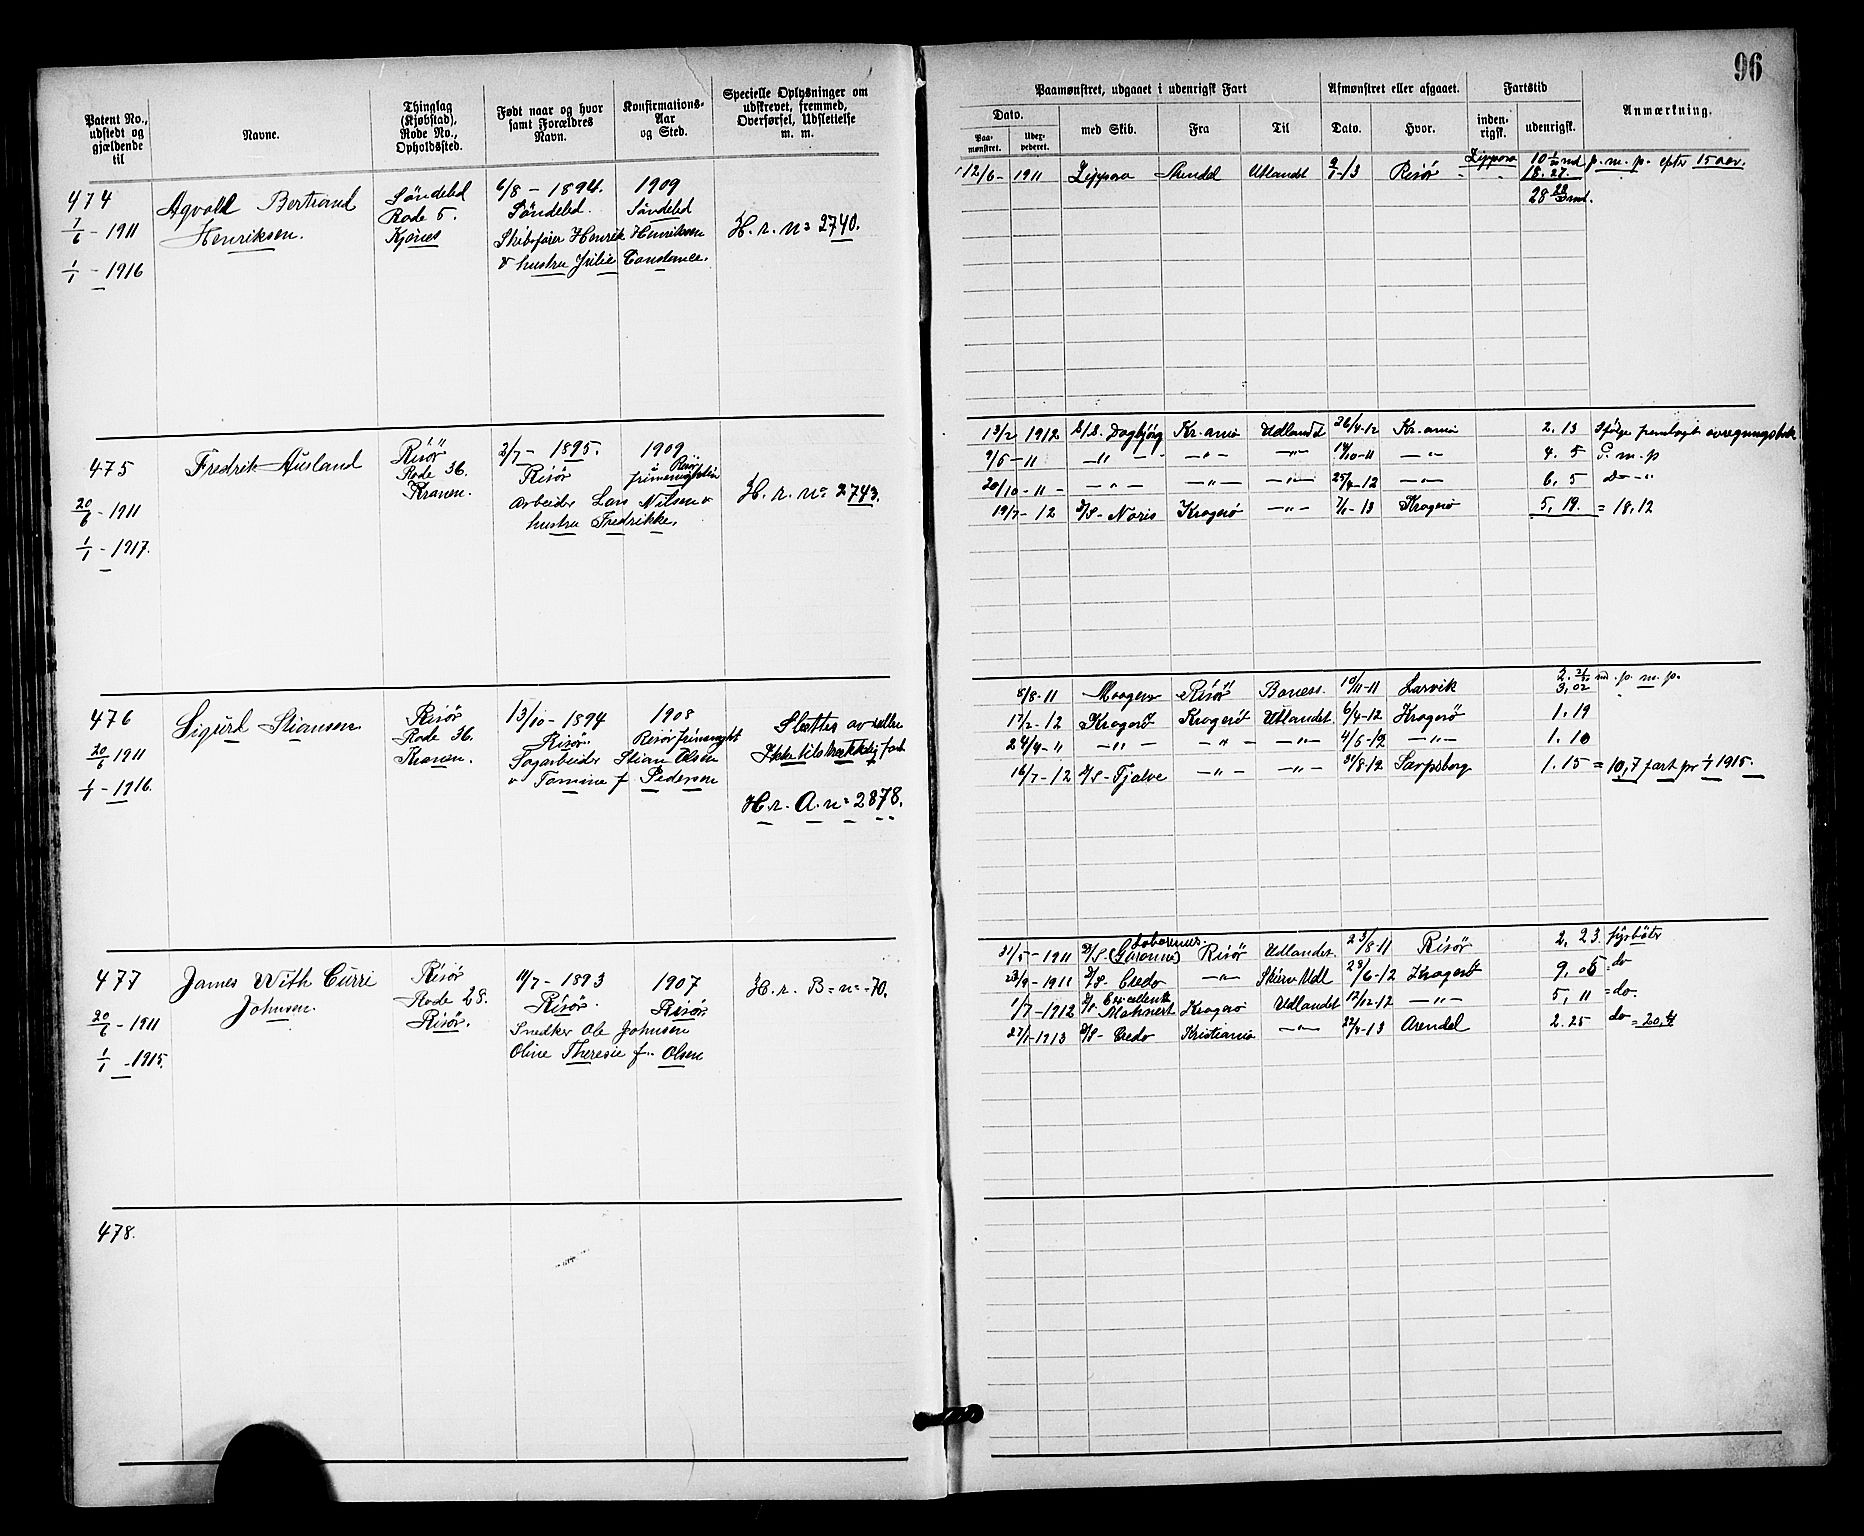 96
Patent No., udstedt og gjældende til
Navne.
Thinglag (Kjøbstad), Rode No., Opholdssted.
Født naar og hvor samt Forældres Navn.
Konfirmations-Aar og Sted.
Specielle Oplysninger om udskrevet, fremmed, Overførsel, Udslettelse m. m.
Paamønstret, udgaaet i udenrigsk Fart
Afmønstret eller afgaaet.
Fartstid
Anmærkning.
Dato.
Paa-mønstret.
Udex-pederet.
med Skib.
Fra
Til
Dato.
Hvor.
inden-rigsk.
udenrigsk.
474
7/6 - 1911
1/1 - 1916
Agvald Bertrand
Henriksen.
Søndeled
Rode 5.
Kjønes
6/8 - 1894.
Søndeled.
1909
Søndeled
Skibsfører Henrik Henriksen
& hustru Julie Constance.
H. r. no 2740.
12/6 - 1911 Zippora Arendal Utlandet 9/1-13 Risør Zippora 10 1/30 md p. m. p. efter 15 aar.
18. 27.
28 28/30 md.
475
20/6 - 1911
1/1 - 1917.
Fredrik Ausland
Risör
Rode 36.
Kranen.
2/7 - 1895.
Risör
1909
Risör
frimenighed
Arbeider Lars Nilsen &
hustru Fredrikke,
H. r. no 2743.
13/2 1912 S/S. Dagbjørg Kr.ania Udlandet 26/4-12 Kr.ania 2. 13 Ifølge fremlagt avregningsbok
9/5 - 11 -"- -"- -"- 14/10-11 -"- 4. 5 P. m. p
20/10 - 11 - -"- -"- -"- 25/4-12 -"- 6, 5 do -"-
19/7 - 12 S/S - Noris Kragerö -"- 7/1-13 Kragerö 5, 19. = 18, 12
476
20/6 1911
1/1 - 1916.
Sigurd Stiansen
Risör
Rode 36.
Kranen.
13/10 - 1894
Risör.
1908
Risör frimenight
Sagarbeider Stian Olsen
& Tomine f Pedersen
Slettes av rullen
Ikke tilstrækkelig fart
H. r. A. no 2878.
8/8-11 Risör Boness. 10/11-11 Larvik 3,02 m. p. m. p.
17/2-12 Kragerö Kragerö Utlandet 6/4-12 Kragerö 1. 19
24/4-" -"- -"- -"- 4/6-12 -"- 1. 10
16/7-12 S/S - Tjalve -"- -"- 31/8-12 Sarpsborg 1. 15 = 10,7 fart pr 1/1 1915.
477
20/6 - 1911
1/1 - 1915.
James With Curri
Johnsen.
Risör
Rode 28.
Risör.
11/7 - 1893
Risör.
1907
Risör
Snedker Ole Johnsen
Oline Theresie f. Olsen
H. r. B = no - 70.
21/5 - 1911 S/S (Garonne) Risör Udlandet 23/8-11 Risör 2, 23. fyrbøter
23/9 - 1911 S/S Credo -"- Udl 28/6-12 Kragerö 9. 05 = do
1/7 - 1912 Kragerö Udlandet 12/12-12 -"- 5, 11 = do.
27/1-1913 S/S - Credo Kristiania -"- 22/4-13 Arendal 2. 25 do = 20,4
478.